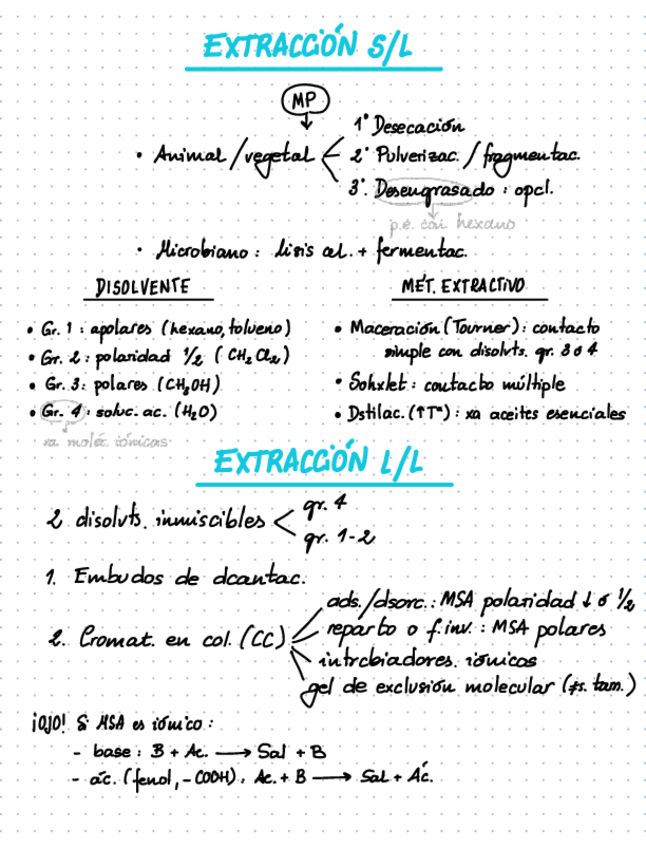 EXTRACCIÓN S/L
MP
1º Desecación
• Animal/vegetal 2º Pulverizac./fragmentac.
3º. Desengrasado : opcl.
p.e. con hexano
• Microbiano : lisis cel. + fermentac.
DISOLVENTE
• Gr. 1 : apolares (hexano, tolueno)
• Gr. 2 : polaridad 1/2 (CH2Cl2)
• Gr. 3 : polares (CH3OH)
• Gr. 4 : soluc. ac. (H2O)
xa moléc. iónicas
MÉT. EXTRACTIVO
• Maceración (Tourner) : contacto
simple con disolvts. gr. 3 o 4
• Sohxlet : contacto múltiple
• Dstilac. (↑Tª) : xa aceites esenciales
EXTRACCIÓN L/L
2 disolvts. inmiscibles
gr. 4
gr. 1-2
1. Embudos de dcantac.
2. Cromat. en col. (CC)
ads./dsorc. : MSA polaridad ↓ o 1/2
reparto o f.inv. : MSA polares
intrcbiadores. iónicos
gel de exclusión molecular (≠s. tam.)
¡OJO! Si MSA es iónico :
- base : B + Ac. → Sal + B
- ác. (fenol, -COOH) : Ac. + B → Sal + Ác.